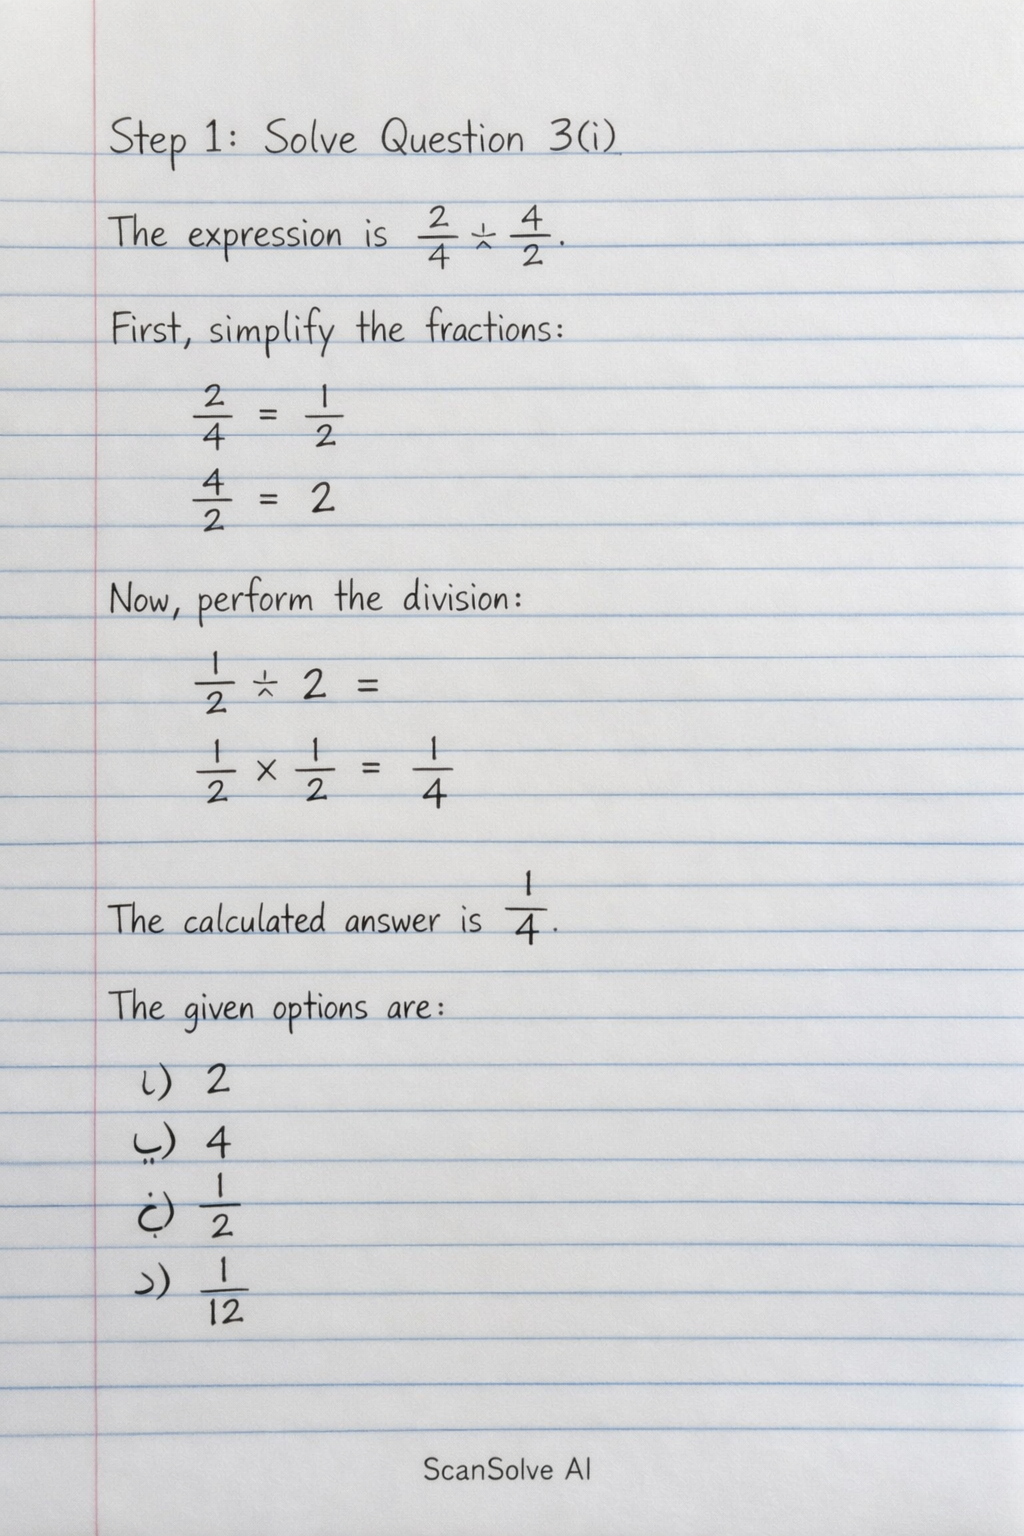 Step 1: Solve Question 3(i)
The expression is 2/4 ÷ 4/2.
First, simplify the fractions:
2/4 = 1/2
4/2 = 2
Now, perform the division:
1/2 ÷ 2 =
1/2 × 1/2 = 1/4
The calculated answer is 1/4.
The given options are:
2
4
1/2
د) 1/12
ScanSolve AI